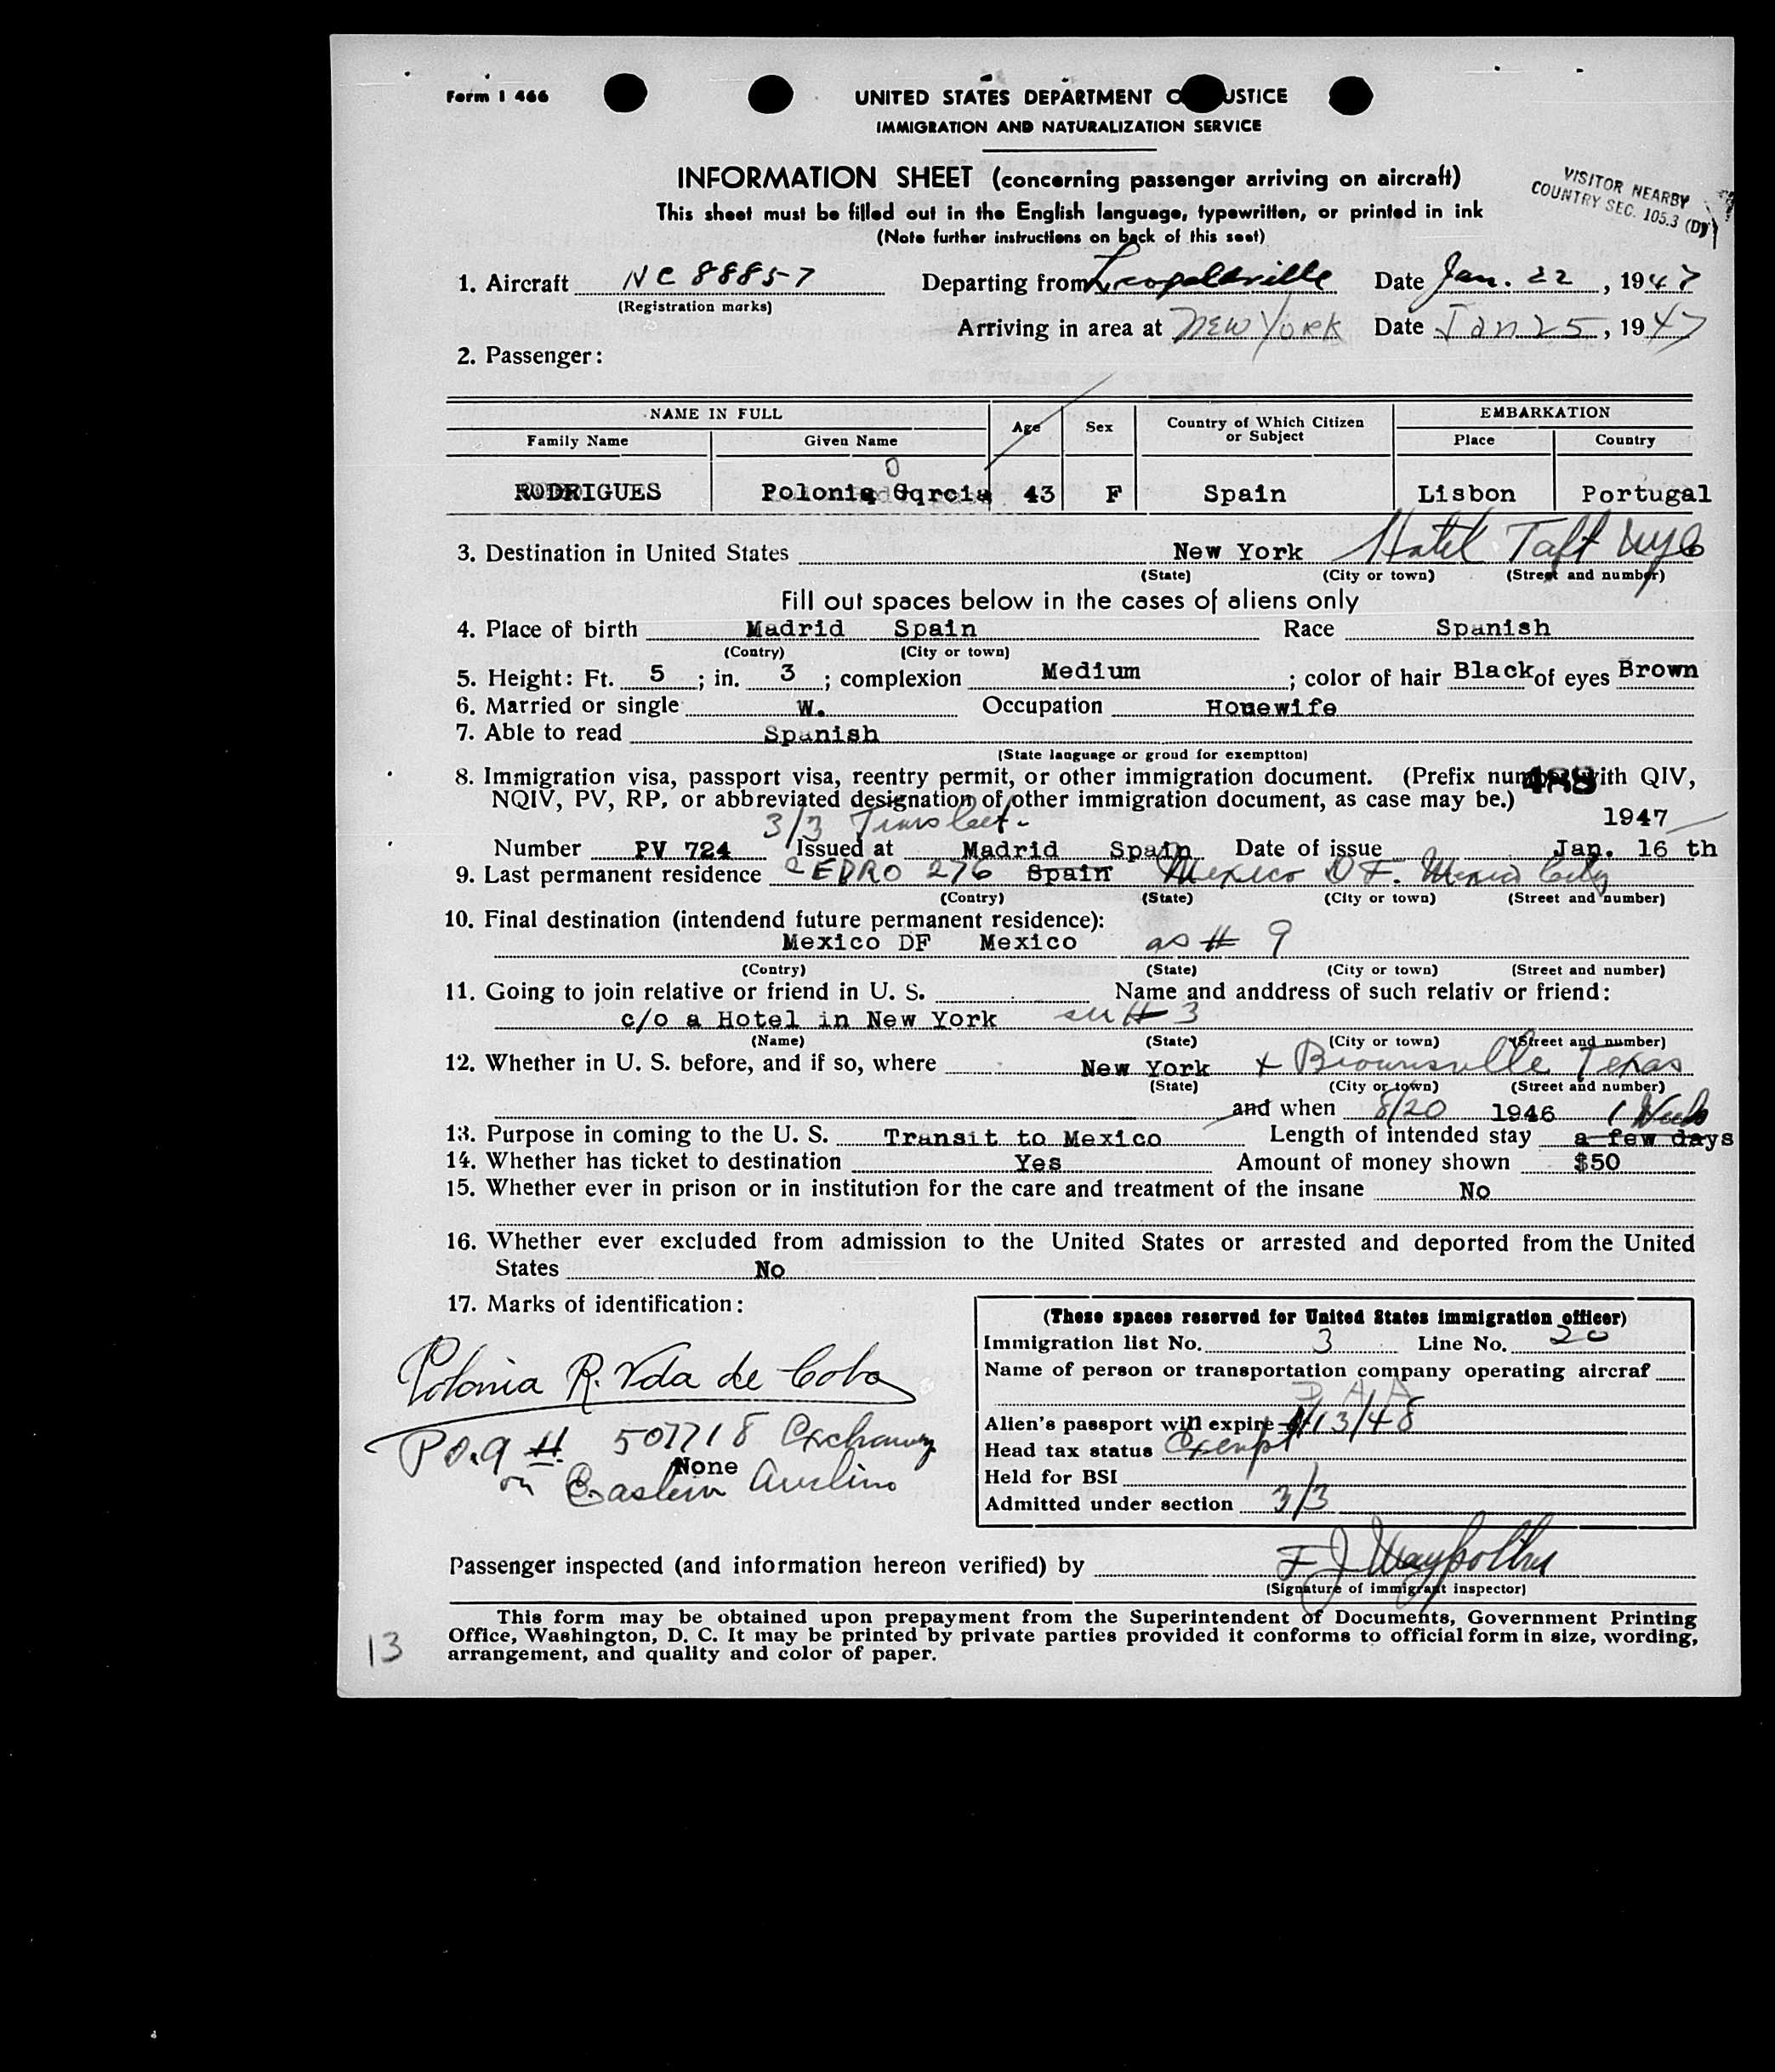 Form I 466
UNITED STATES DEPARTMENT O USTICE
IMMIGRATION AND NATURALIZATION SERVICE
INFORMATION SHEET (concerning passenger arriving on aircraft)
This sheet must be filled out in the English language, typewritten, or printed in ink
(Note further instructions on back of this seet)
VISITOR NEARBY
COUNTRY SEC. 105.3 (D)
1. Aircraft NC 88857 Departing from Leopoldville Date Jan. 22, 1947
(Registration marks)
Arriving in area at New York Date Jan 25, 1947
2. Passenger:
NAME IN FULL Age Sex Country of Which Citizen or Subject EMBARKATION
Family Name Given Name Place Country
RODRIGUES Polonia Garcia 43 F Spain Lisbon Portugal
3. Destination in United States New York Hotel Taft NYC
(State) (City or town) (Street and number)
Fill out spaces below in the cases of aliens only
4. Place of birth Madrid Spain Race Spanish
(Contry) (City or town)
5. Height: Ft. 5 ; in. 3 ; complexion Medium ; color of hair Black of eyes Brown
6. Married or single W. Occupation Houewife
7. Able to read Spanish
(State language or groud for exemptton)
8. Immigration visa, passport visa, reentry permit, or other immigration document. (Prefix number with QIV,
488
NQIV, PV, RP, or abbreviated designation of other immigration document, as case may be.)
3/3 1947
Number PV 724 Issued at Madrid Spain Date of issue Jan. 16 th
9. Last permanent residence CEDRO 276 Spain Mexico D F. Mexico City
(Contry) (State) (City or town) (Street and number)
10. Final destination (intendend future permanent residence):
Mexico DF Mexico as # 9
(Contry) (State) (City or town) (Street and number)
11. Going to join relative or friend in U. S. Name and anddress of such relativ or friend:
c/o a Hotel in New York see # 3
(Name) (State) (City or town) (Street and number)
12. Whether in U. S. before, and if so, where New York + Brownsville Texas
(State) (City or town) (Street and number)
and when 8/20 1946 1 Week
13. Purpose in coming to the U. S. Transit to Mexico Length of intended stay a few days
14. Whether has ticket to destination Yes Amount of money shown $50
15. Whether ever in prison or in institution for the care and treatment of the insane No
16. Whether ever excluded from admission to the United States or arrested and deported from the United
States No
17. Marks of identification:
Polonia R. Vda de Coba
501718
None
on Eastern
(These spaces reserved for United States immigration officer)
Immigration list No. 3 Line No. 20
Name of person or transportation company operating aircraf
P A A
Alien's passport will expire 1/13/48
Head tax status Exempt
Held for BSI
Admitted under section 3/3
Passenger inspected (and information hereon verified) by F J
(Signature of immigrant inspector)
This form may be obtained upon prepayment from the Superintendent of Documents, Government Printing
Office, Washington, D. C. It may be printed by private parties provided it conforms to official form in size, wording,
arrangement, and quality and color of paper.
13